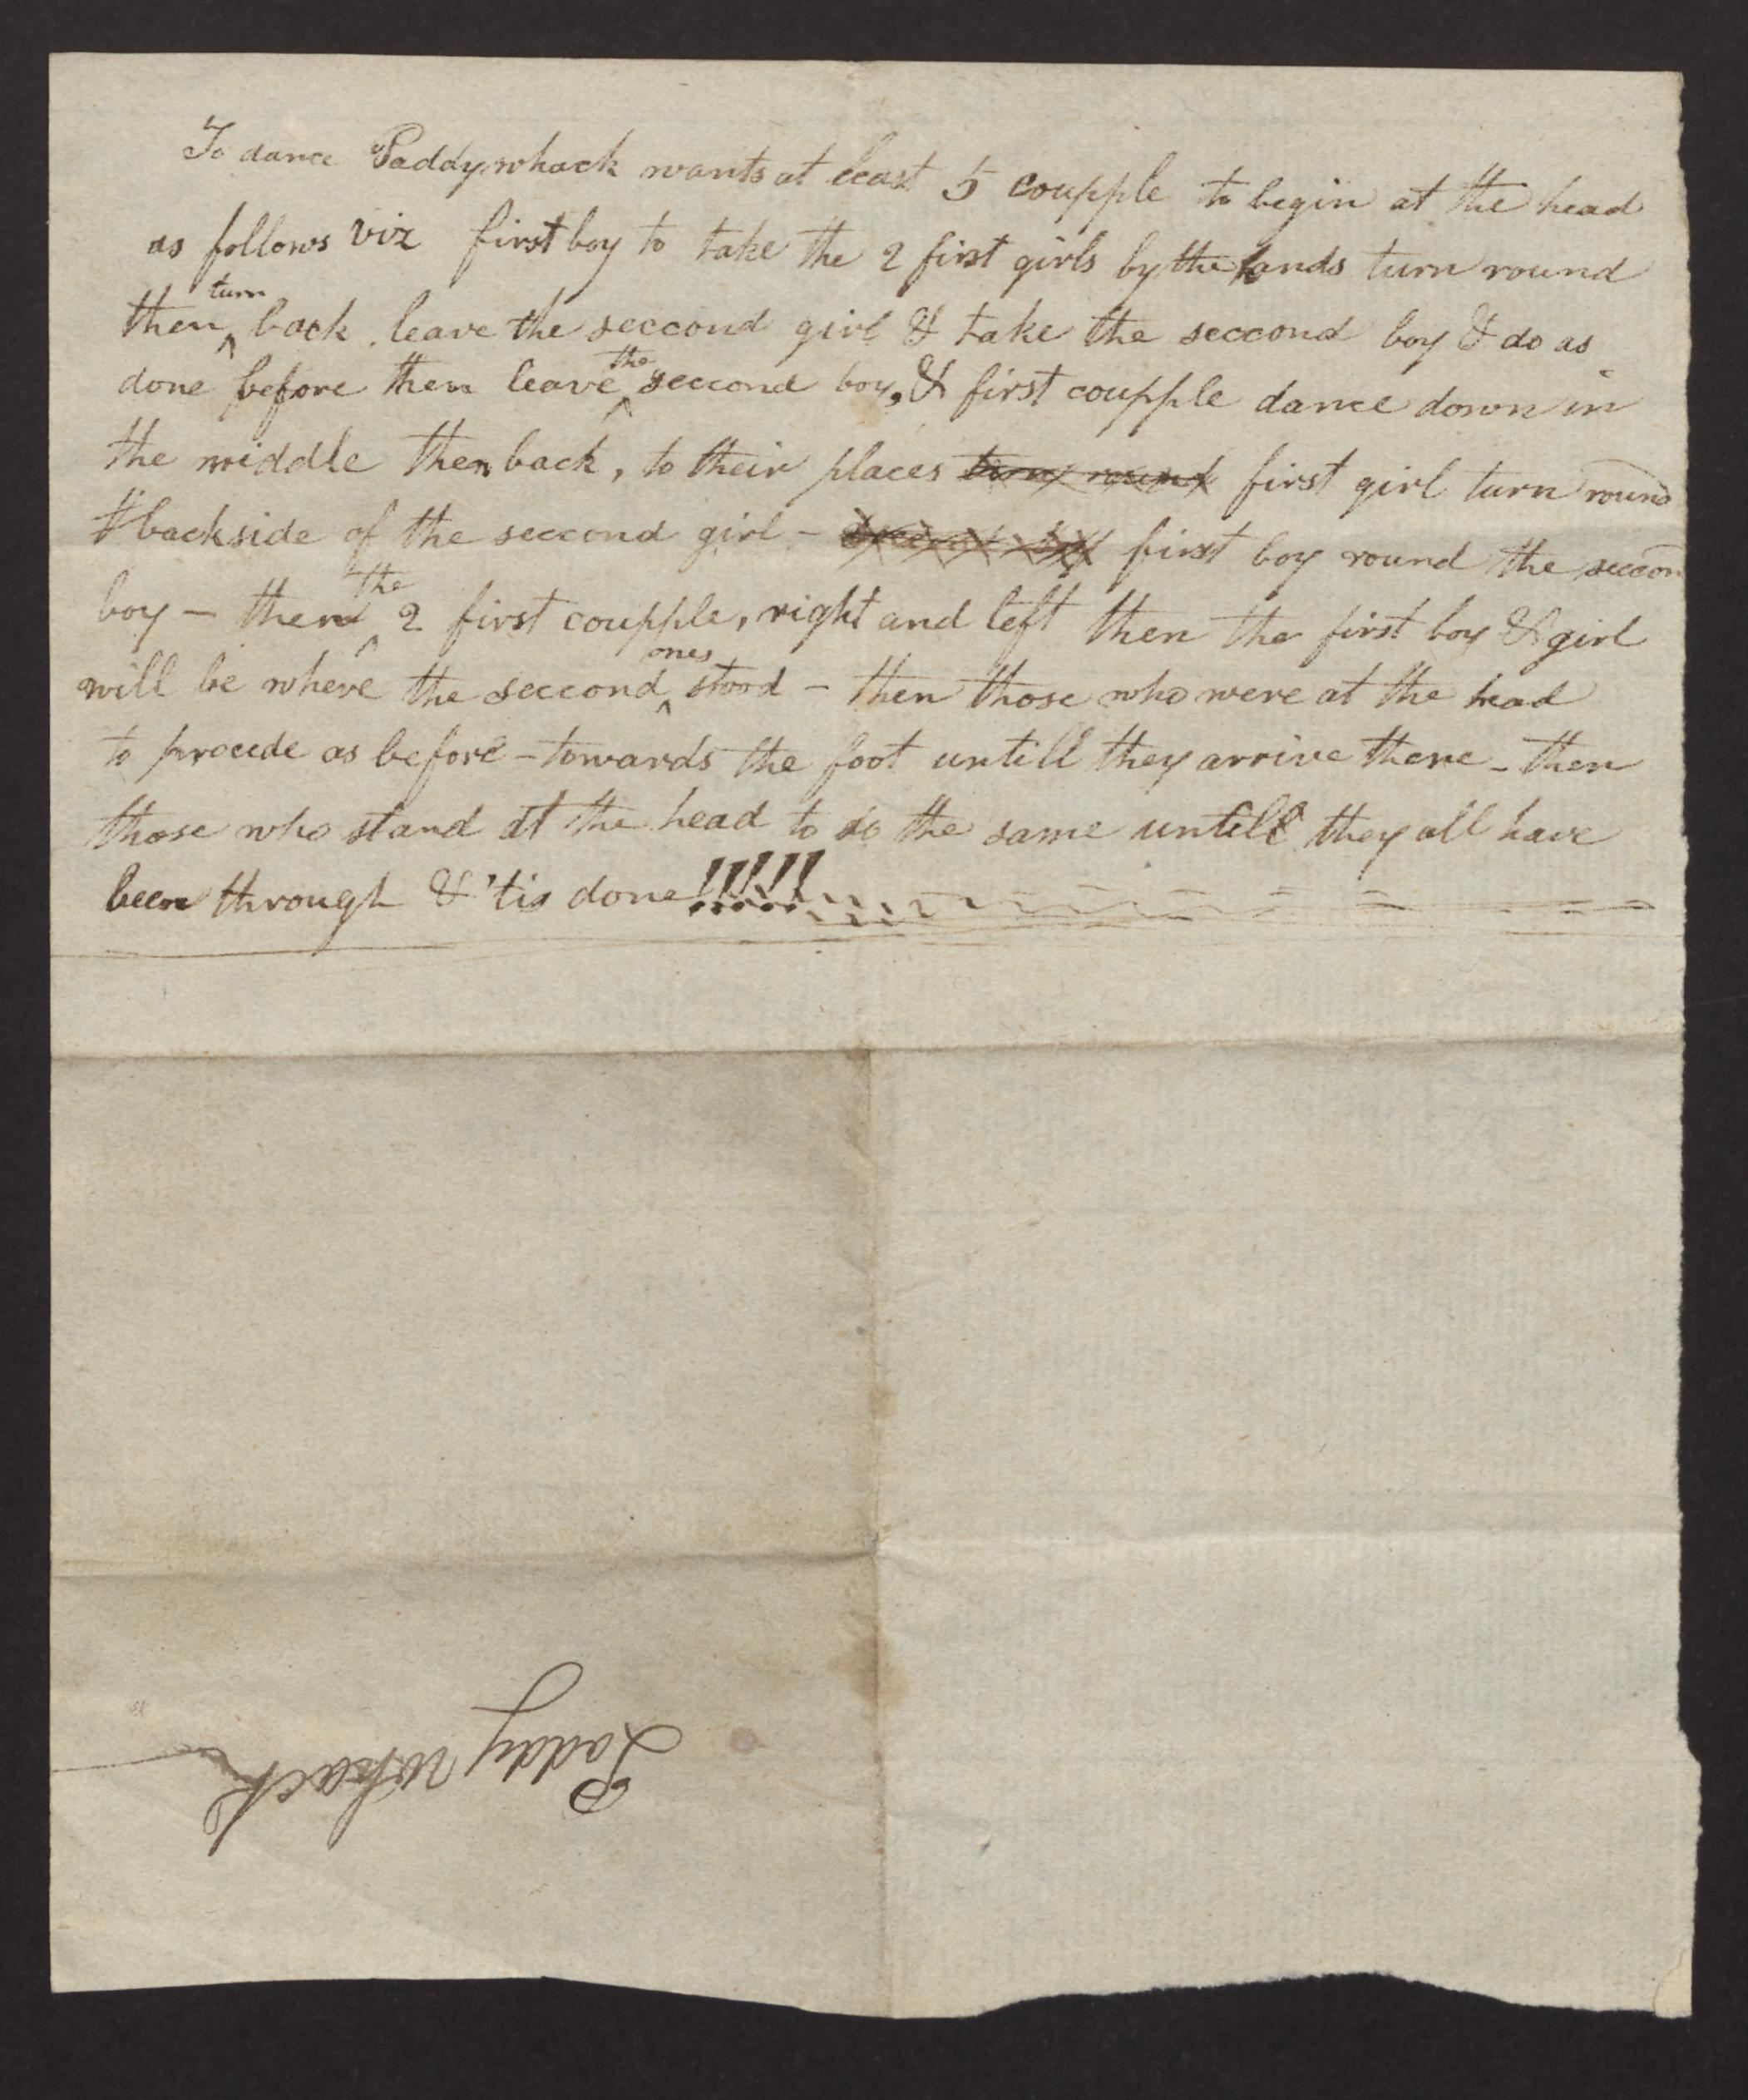 To dance Paddywhack wants at least 5 coupple to begin at the head
as follows viz first boy to take the 2 first girls by the hands turn round
then turn back leave the seccond girl & take the seccond boy & do as
done before then leave the seccond boy, & first coupple dance down in
the middle then back, to their places turn round first girl turn round
backside of the seccond girl - first boy round the seccon
boy - then the 2 first coupple, right and left then the first boy & girl
will be where the seccond ones stood - then those who were at the head
to procede as before - towards the foot untill they arrive there - then
those who stand at the head to do the same untill they all have
been through & 'tis done!!!!!!
Paddy whack